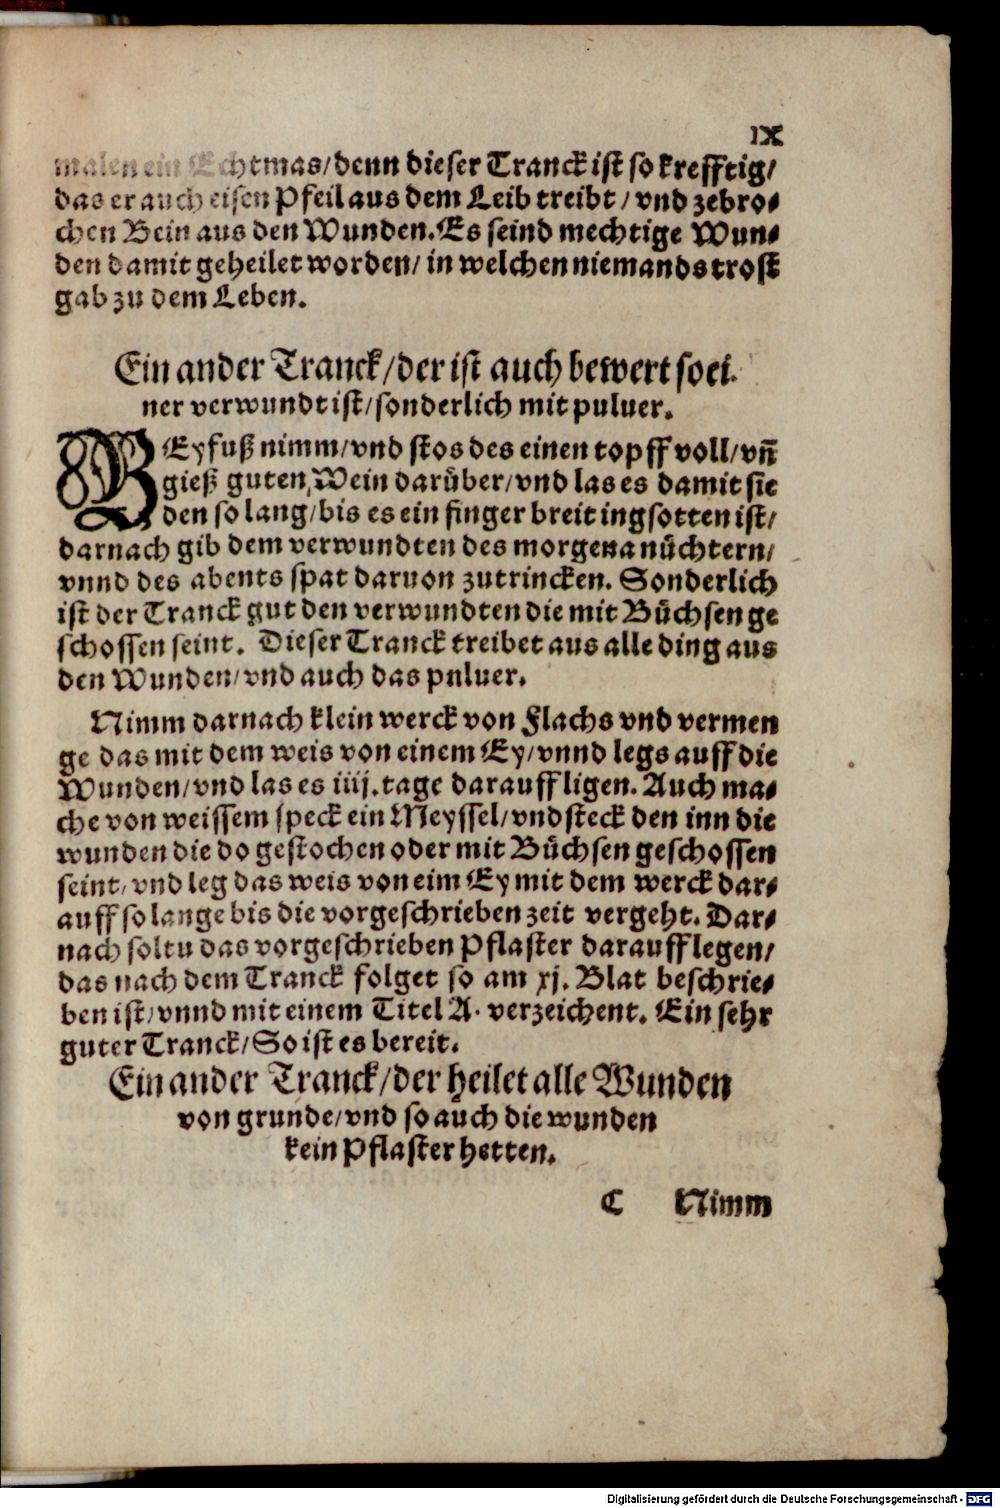 IX
malen ein Echtmas/denn dieser Tranck ist so krefftig/
das er auch eisen Pfeil aus dem Leib treibt / vnd zebro⸗
chen Bein aus den Wunden. Es seind mechtige Wun⸗
den damit geheilet worden/ in welchen niemands trost
gab zu dem Leben.
Ein ander Tranck/der ist auch bewert so ei⸗
ner verwundt ist/sonderlich mit puluer.
BEyfuß nimm/vnd stos des einen topff voll/vñ
gieß guten Wein darüber/vnd las es damit sie
den so lang/bis es ein finger breit ingsotten ist/
darnach gib dem verwundten des morgena nüchtern/
vnnd des abents spat daruon zutrincken. Sonderlich
ist der Tranck gut den verwundten die mit Büchsen ge
schossen seint. Dieser Tranck treibet aus alle ding aus
den Wunden/vnd auch das pnluer.
Nimm darnach klein werck von Flachs vnd vermen
ge das mit dem weis von einem Ey/vnnd legs auff die
Wunden/vnd las es iiij. tage darauff ligen. Auch ma⸗
che von weissem speck ein Meyssel/vnd steck den inn die
wunden die do gestochen oder mit Büchsen geschossen
seint/vnd leg das weis von eim Ey mit dem werck dar⸗
auff so lange bis die vorgeschrieben zeit vergeht. Dar⸗
nach soltu das vorgeschrieben Pflaster darauff legen/
das nach dem Tranck folget so am xj. Blat beschrie⸗
ben ist/vnnd mit einem Titel A. verzeichent. Ein sehr
guter Tranck/So ist es bereit.
Ein ander Tranck/der heilet alle Wunden
von grunde/vnd so auch die wunden
kein Pflaster hetten.
C Nimm
Digitalisierung gefördert durch die Deutsche Forschungsgemeinschaft - DFG